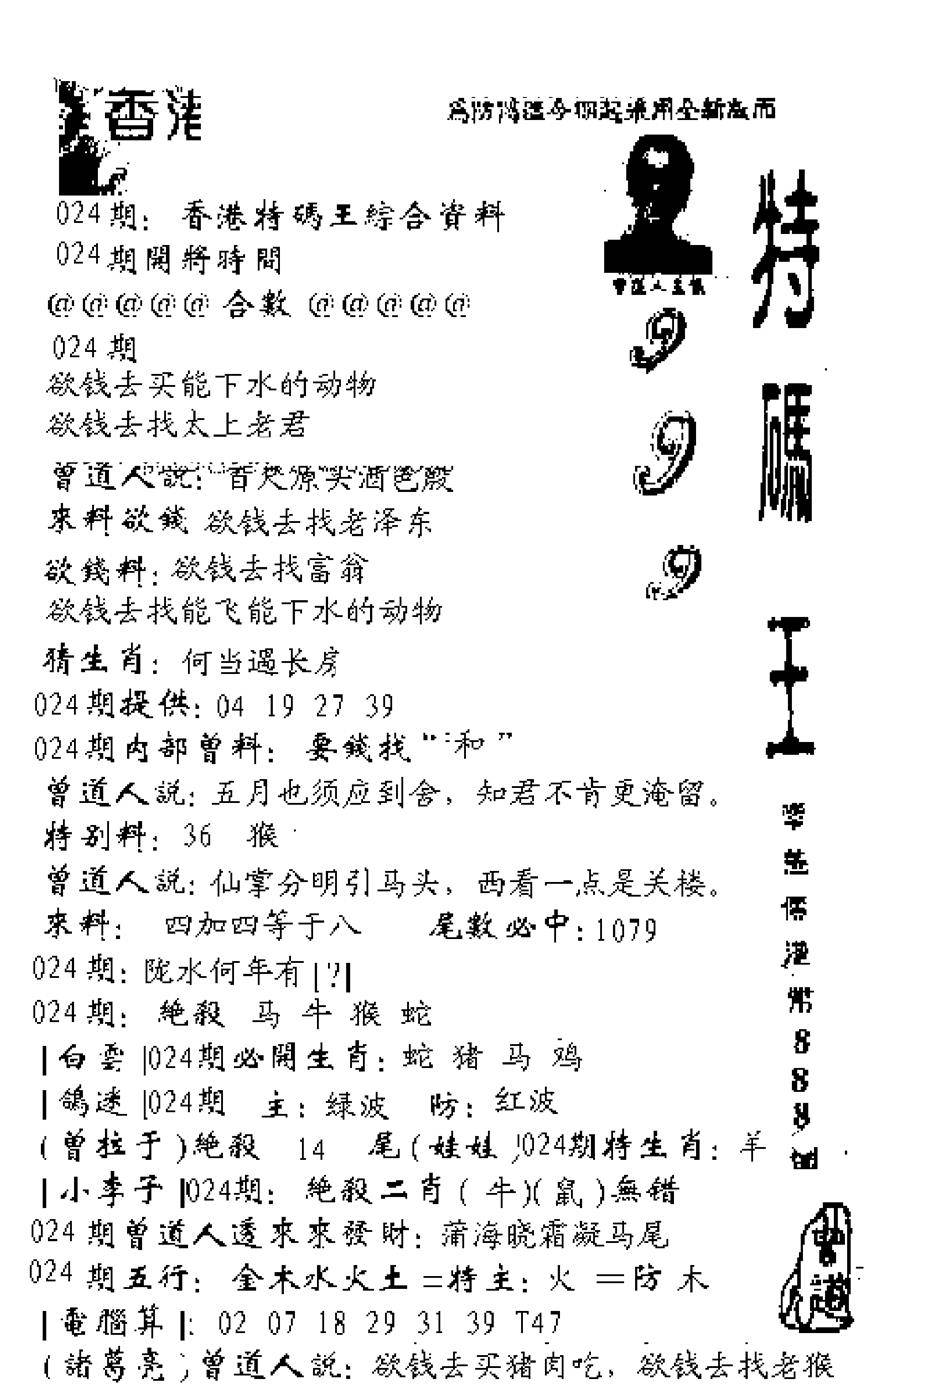 香港
024期：香港特碼王綜合資料
024期開將時間
@@@@@合數@@@@@
024期
欲钱去买能下水的动物
欲钱去找太上老君
曾道人説：
來料欲錢 欲钱去找老泽东
欲錢料：欲钱去找富翁
欲钱去找能飞能下水的动物
猜生肖：何当遇长房
024期提供：04 19 27 39
024期内部曾料：要錢找“和”
曾道人説：五月也须应到舍，知君不肯更淹留。
特别料：36 猴
曾道人説：仙掌分明引马头，西看一点是关楼。
來料： 四加四等于八 尾數必中：1079
024期：陇水何年有|?|
024期：絶殺 马 牛 猴 蛇
|白雲|024期必開生肖：蛇 猪 马 鸡
|鴿迷|024期 主：绿波 防：红波
(曾拉于)絶殺 14 尾(娃娃)024期特生肖：羊
|小李子|024期：絶殺二肖(牛)(鼠)無错
024期曾道人透來來發財：蒲海晓霜凝马尾
024期五行：金木水火土=特主：火 =防木
|電腦算|：02 07 18 29 31 39 T47
(諸葛亮)曾道人説：欲钱去买猪肉吃，欲钱去找老猴
特碼王
9
9
9
港幣888
曾道